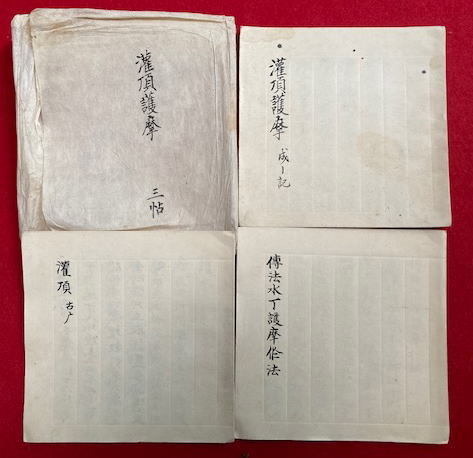 灌頂護摩
三帖
灌頂護摩 成ー記
灌頂 古广
傳法水丁護摩作法